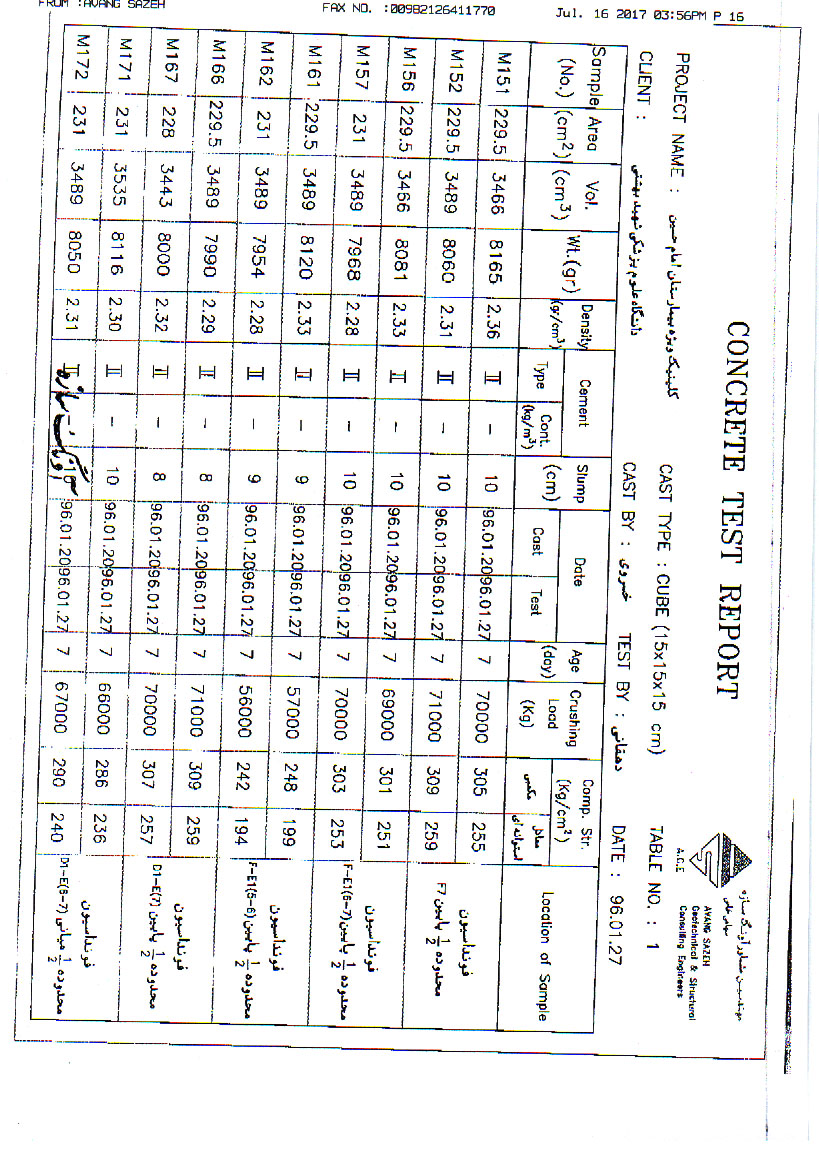 FROM :AVANG SAZEH FAX NO. :00982126411770 Jul. 16 2017 03:56PM P 16
CONCRETE TEST REPORT
مهندسین مشاور آونگ سازه
AVANG SAZEH
Geotechnical & Structural
Consulting Engineers
A.C.E
PROJECT NAME : کلینیک ویژه بیمارستان امام حسین CAST TYPE : CUBE (15x15x15 cm) TABLE NO. : 1
CLIENT : دانشگاه علوم پزشکی شهید بهشتی CAST BY : خسروی TEST BY : دهقانی DATE : 96.01.27
Sample (No.) Area (cm2) Vol. (cm3) Wt.(gr) Density (gr/cm3) Cement Type Cont. (kg/m3) Slump (cm) Date Cast Test Age (day) Crushing Load (Kg) Comp. Str. (Kg/cm2) مکعبی معادل استوانه ای Location of Sample
M151 229.5 3466 8165 2.36 II - 10 96.01.20 96.01.27 7 70000 305 255
M152 229.5 3489 8060 2.31 II - 10 96.01.20 96.01.27 7 71000 309 259
فونداسیون
محدوده 1/2 پایین F7
M156 229.5 3466 8081 2.33 II - 10 96.01.20 96.01.27 7 69000 301 251
M157 231 3489 7968 2.28 II - 10 96.01.20 96.01.27 7 70000 303 253
فونداسیون
محدوده 1/2 پایین F-E1(6-7)
M161 229.5 3489 8120 2.33 II - 9 96.01.20 96.01.27 7 57000 248 199
M162 231 3489 7954 2.28 II - 9 96.01.20 96.01.27 7 56000 242 194
فونداسیون
محدوده 1/2 پایین F-E1(5-6)
M166 229.5 3489 7990 2.29 II - 8 96.01.20 96.01.27 7 71000 309 259
M167 228 3443 8000 2.32 II - 8 96.01.20 96.01.27 7 70000 307 257
فونداسیون
محدوده 1/2 پایین D1-E(7)
M171 231 3535 8116 2.30 II - 10 96.01.20 96.01.27 7 66000 286 236
M172 231 3489 8050 2.31 II - 10 96.01.20 96.01.27 7 67000 290 240
فونداسیون
محدوده 1/2 میانی D1-E(6-7)